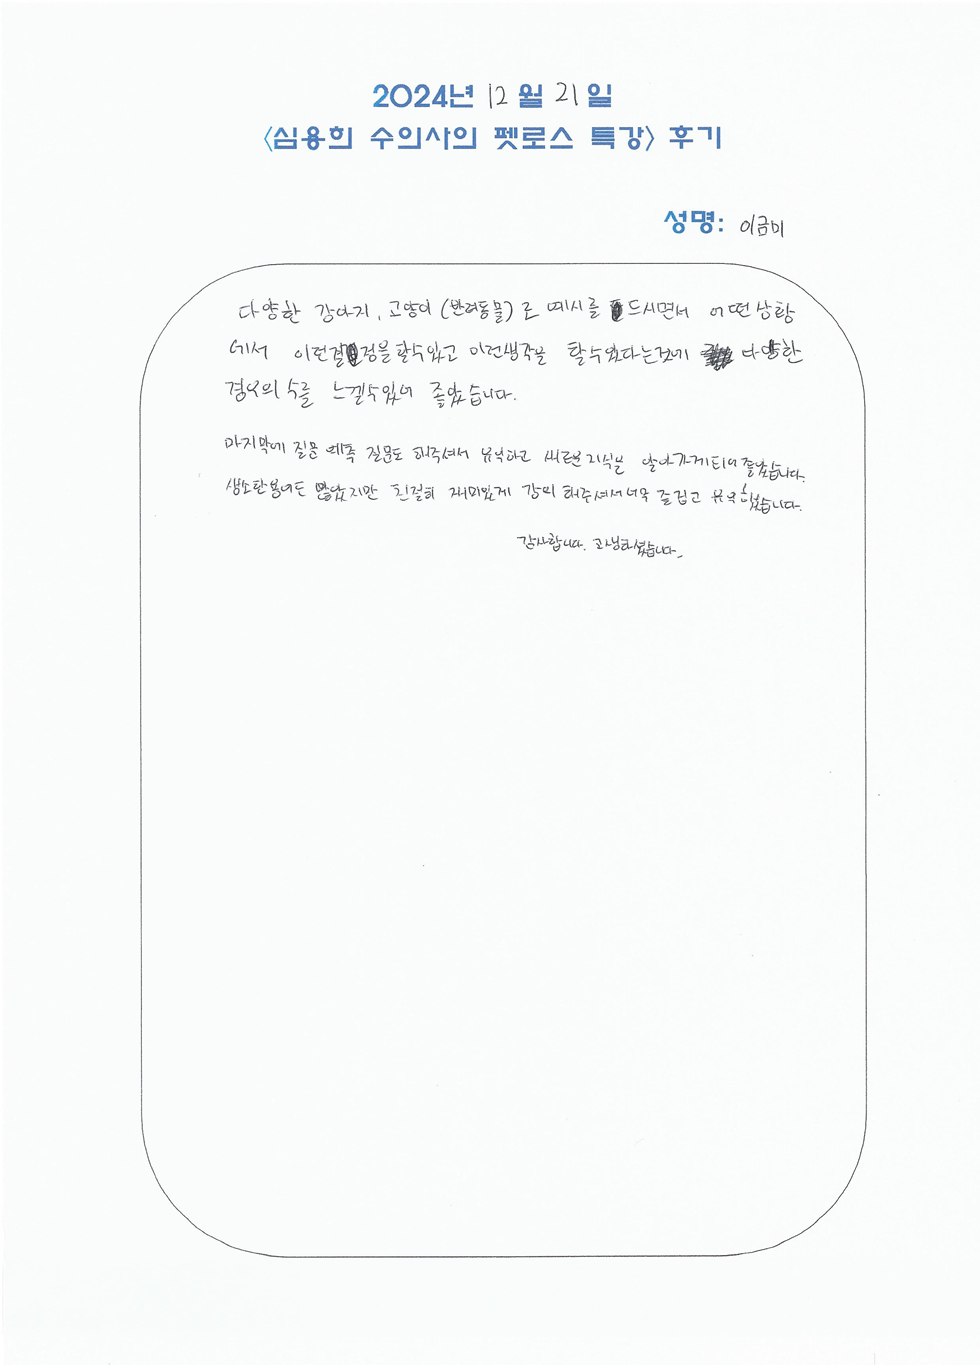 2024년 12월 21일
<심용희 수의사의 펫로스 특강> 후기
성명: 이금미
다양한 강아지, 고양이 (반려동물)로 예시를 드시면서 어떤상황
에서 이런결정을할수있고 이런생각을 할수있다는것에 다양한
경우의수를 느낄수있어 좋았습니다.
마지막에 질문 해주셔서 유익하고 새로운지식을 알아가게되어좋았습니다.
생소한용어도 많았지만 친절히 재미있게 강의해주셔서너무 즐겁고 유익했습니다.
감사합니다. 고생하셨습니다.